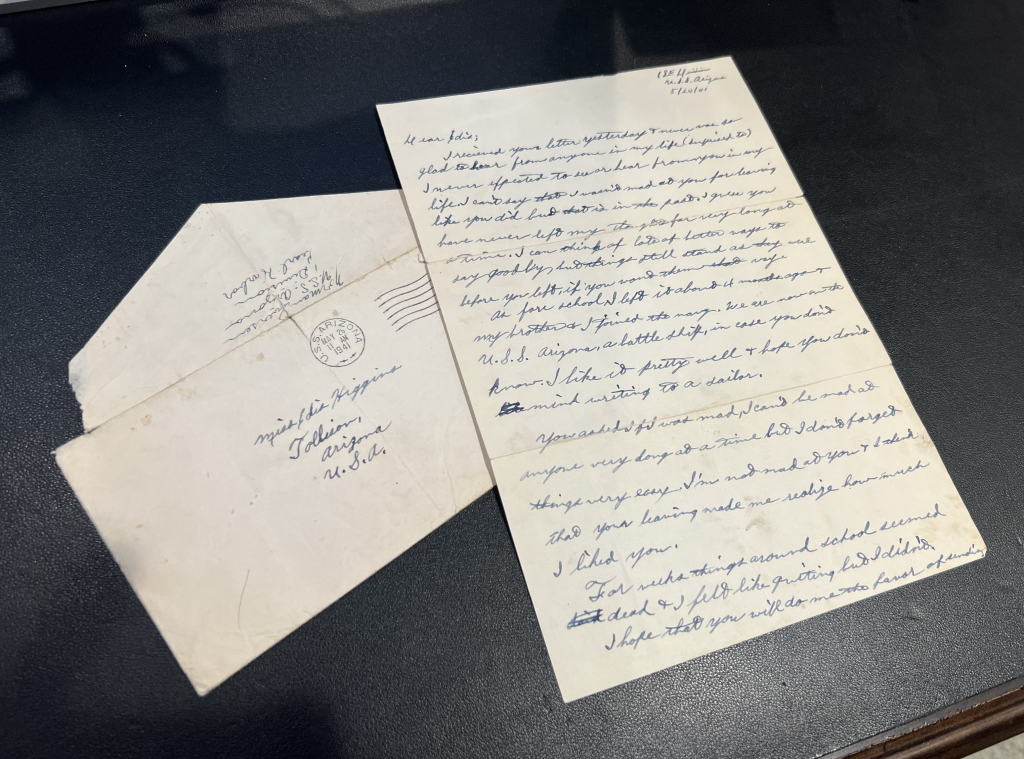 U.S.S. Arizona
5/24/41
Dear Idis;
I recieved your letter yesterday & never was so
glad to hear from anyone in my life (Surprised to)
I never expected to see or hear from you in my
life. I can't say that I wasn't mad at you for leaving
like you did but that is in the past. I guess you
have never left my for very long at
a time. I can think of lots of better ways to
say goodby, but things still stand as they were
before you left, if you want them that way.
As fore school I left it about 4 months ago &
my brother & I joined the navy. We are now on the
U.S.S. Arizona, a battle ship, in case you don't
know. I like it pretty well & hope you don't
mind writing to a sailor.
You asked if I was mad, I can't be mad at
anyone very long at a time but I don't forget
things very easy. I'm not mad at you & I think
that your leaving made me realize how much
I liked you.
For weeks things around school seemed
dead & I felt like quiting but I didn't.
I hope that you will do me the favor of sending
U.S.S. Arizona
Division
Pearl Harbor
U.S.S. ARIZONA
MAY 25
11 AM
1941
Miss Idis Higgins
Tolleson,
Arizona
U.S.A.